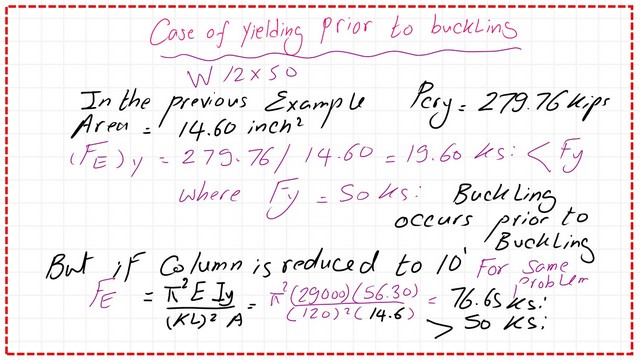 Case of yielding prior to buckling
W 12x50
In the previous Example Pcry = 279.76 kips
Area = 14.60 inch²
(FE)y = 279.76/14.60 = 19.60 ksi < Fy
where Fy = 50 ksi Buckling
occurs prior to
Buckling
But if Column is reduced to 10' For same
problem
FE = π² E Iy / (KL)² A = π²(29000)(56.30) / (120)²(14.6) = 76.65 ksi
> 50 ksi